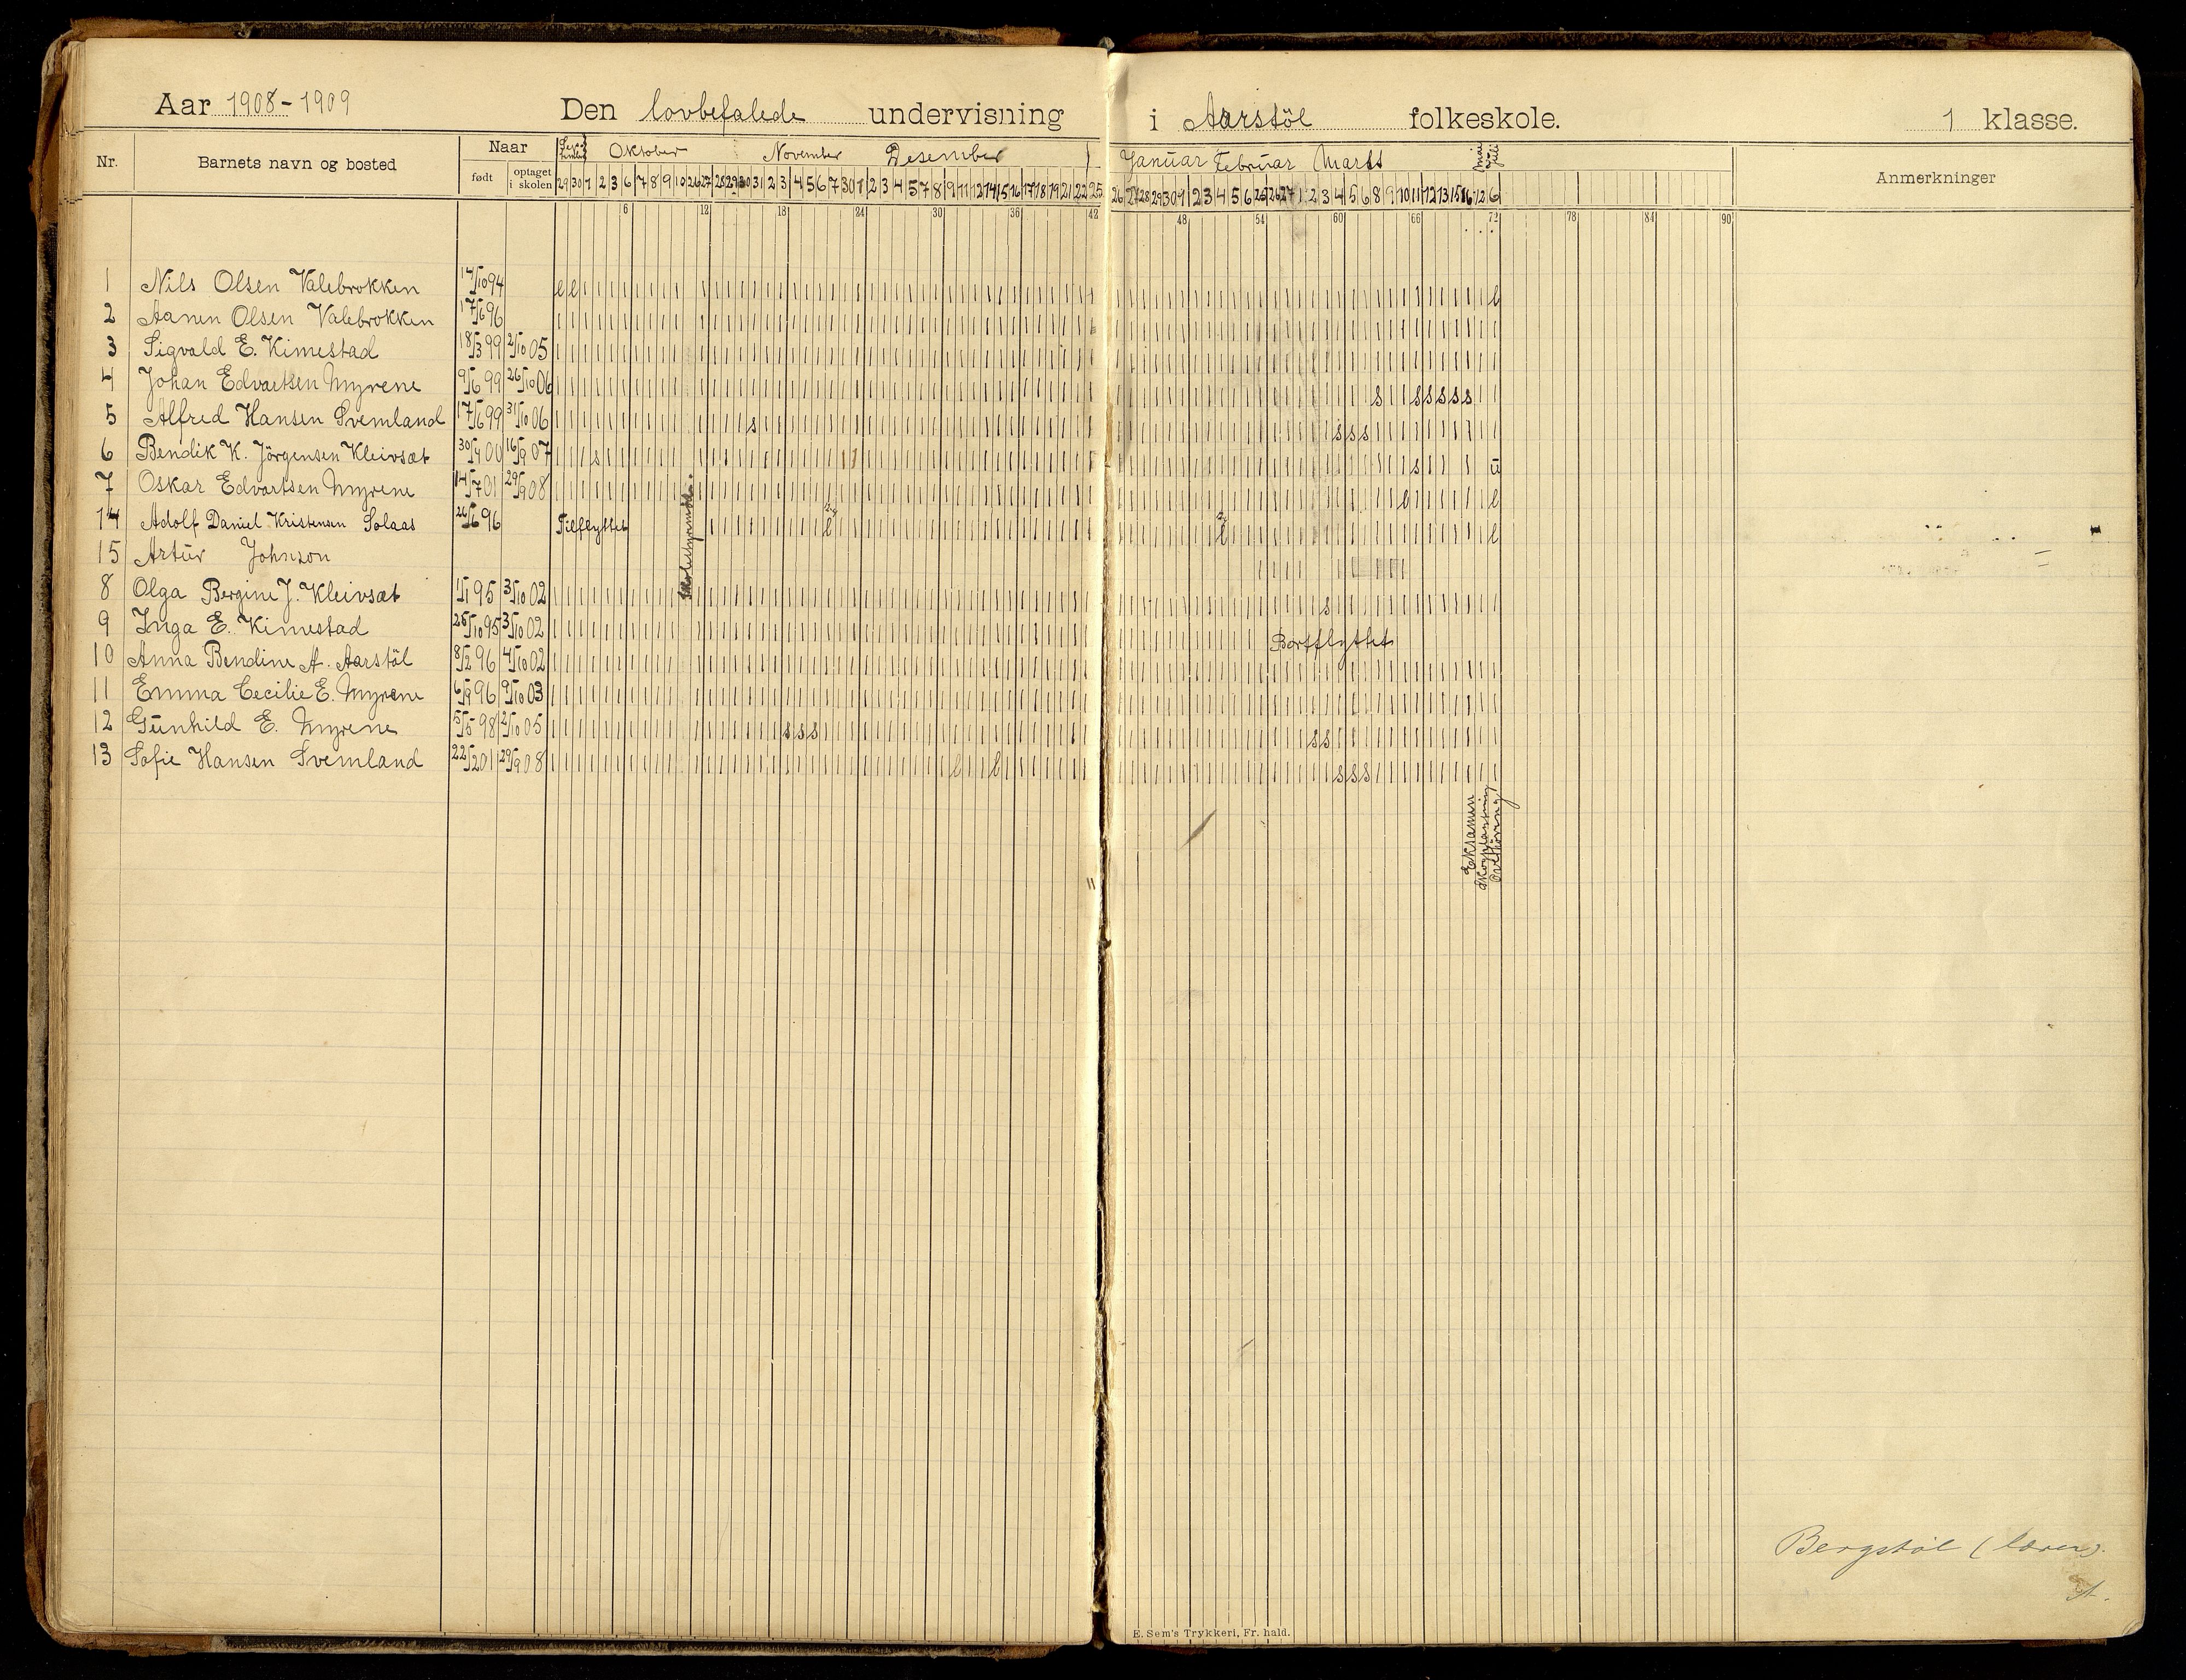 Aar 1908-1909 Den lovbefalede undervisning i Aarstöl folkeskole. 1 klasse.
Nr. Barnets navn og bosted Naar født optaget i skolen Anmerkninger
September Oktober November Desember Januar Februar Marts Mai Juli
29 30 1 2 3 6 7 8 9 10 26 27 28 29 30 31 2 3 4 5 6 7 30 1 2 3 4 5 7 8 9 11 12 14 15 16 17 18 19 21 22 25 26 27 28 29 30 1 2 3 4 5 6 25 26 27 1 2 3 4 5 6 8 9 10 11 12 13 15 16 12 6
6 12 18 24 30 36 42 48 54 60 66 72 78 84 90
1 Nils Olsen Valebrokken 14/10 94 l l l
2 Aanen Olsen Valebrokken 17/6 96
3 Sigvald E. Kimestad 18/3 99 2/10 05
4 Johan Edvartsen Myrene 9/6 99 26/10 06 s s s s s s
5 Alfred Hansen Svemland 17/6 99 31/10 06 s s s s
6 Bendik K. Jörgensen Kleivsæt 30/9 00 16/9 07 s s u
7 Oskar Edvartsen Myrene 14/7 01 29/9 08 l l
14 Adolf Daniel Kristensen Solaas 26/6 96 Tilflyttet l l l
15 Artur Johnson
8 Olga Bergine J. Kleivsæt 1/1 95 3/10 02 s
9 Inga E. Kimestad 25/10 95 3/10 02 Bortflyttet
10 Anna Bendine A. Aarstöl 8/2 96 4/10 02
11 Emma Cecilie E. Myrene 6/9 96 9/10 03
12 Gunhild E. Myrene 5/5 98 2/10 05 s s s s s
13 Sofie Hansen Svemland 22/2 01 29/9 08 l l s s s
Eksamen
Skogplantning
Overhöring
Bergstöl (lærer).
E. Sem's Trykkeri, Fr. hald.